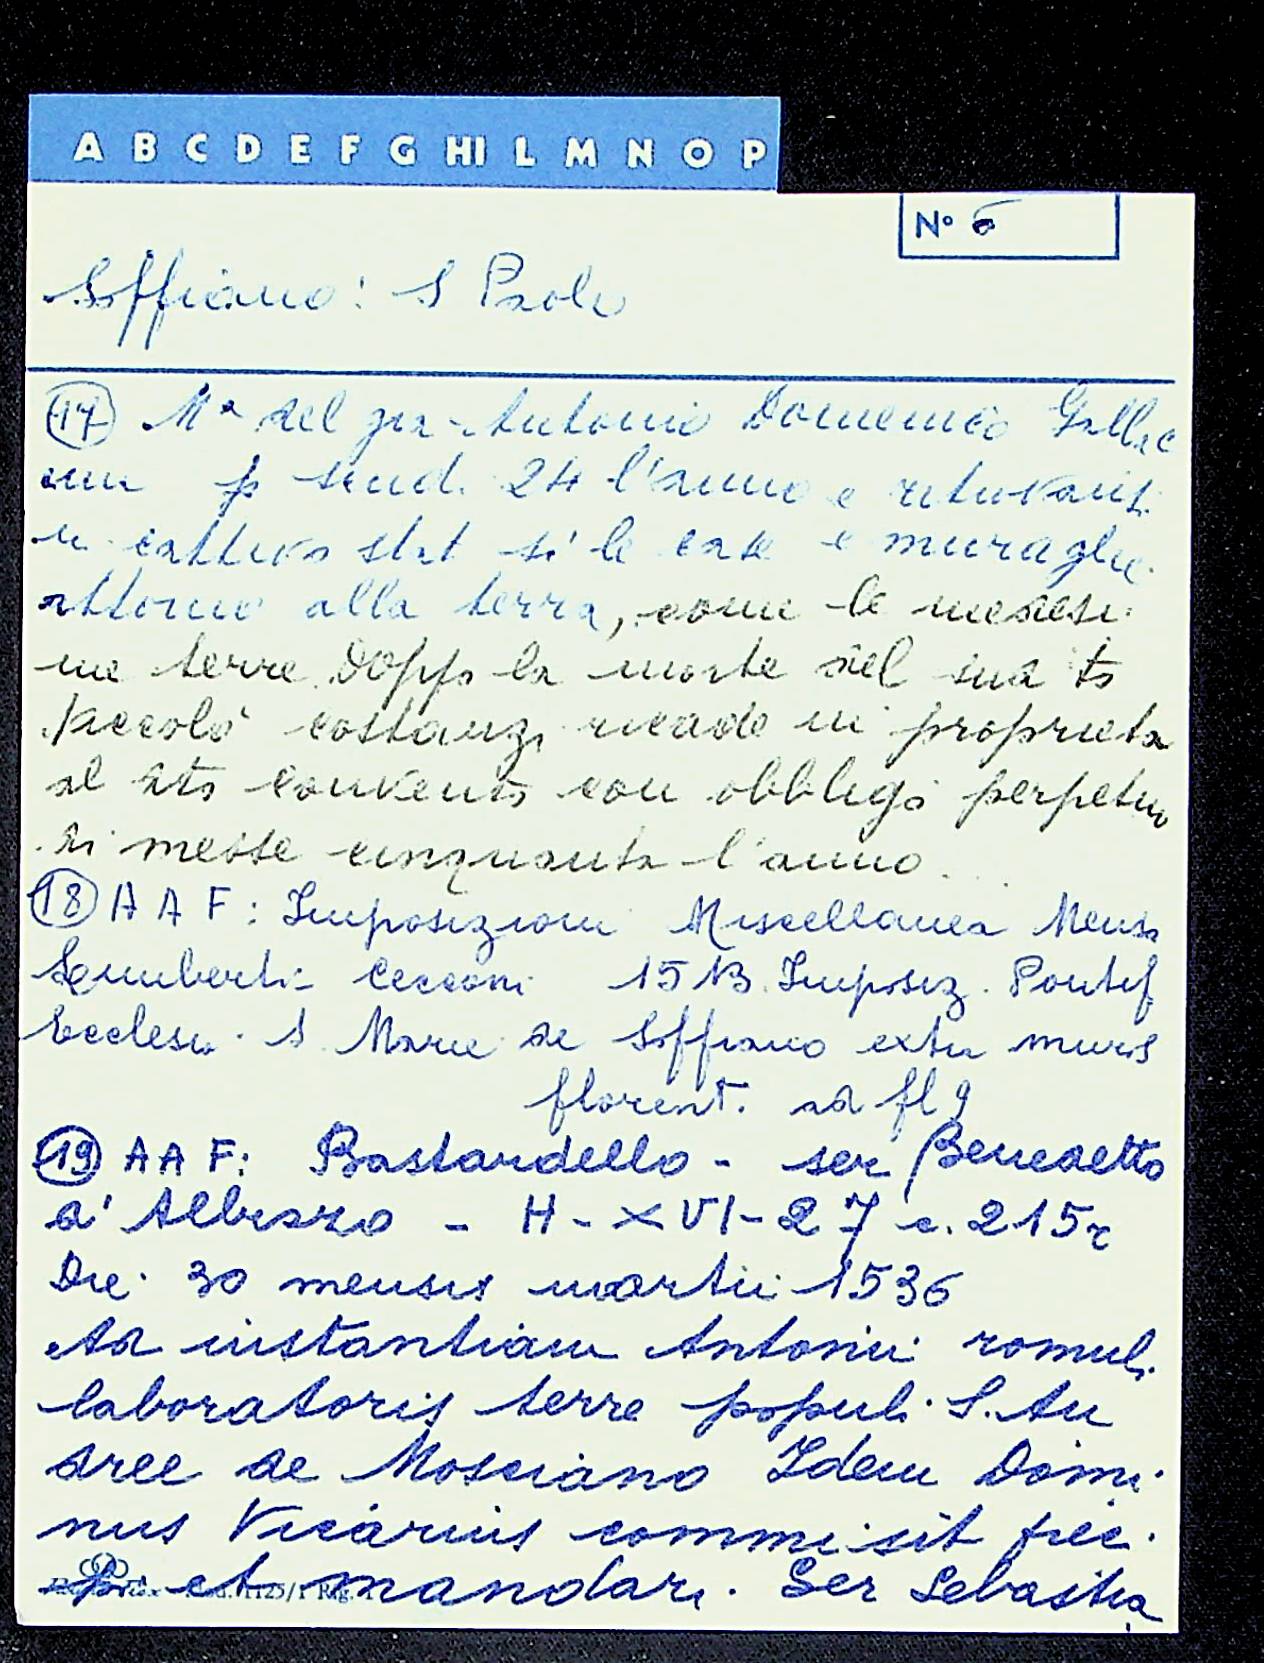 A B C D E F G HI L M N O P
Nº 6
Soffiano: S Paolo
(17) Mª del qm Antonio Domenico
p scudi 24 l'anno e
in cattivo stat sì le case e muraglie
attorno alla terra, come le medesi
me terre. Doppo la morte del sud to
Niccolò costanzi ricade in proprietà
al dto convento con obbligo perpetuo
di messe cinquanta l'anno...
(18) A A F: Imposizioni Miscellanea Mensa
Cecconi 15 B. Imposiz. Pontif
Ecclesia S. Marie de Soffiano extra muros
florent. ad fl 9
(19) A A F: Bastardello - ser Benedetto
d' Albizzo - H - XVI - 27 c. 215r
Die 30 mensis martii 1536
Ad instantiam Antonii romuli
laboratoris terre populi S. An
dree de Mosciano Idem Domi
nus Vicarius commisit
et mandari. Ser Sebastia